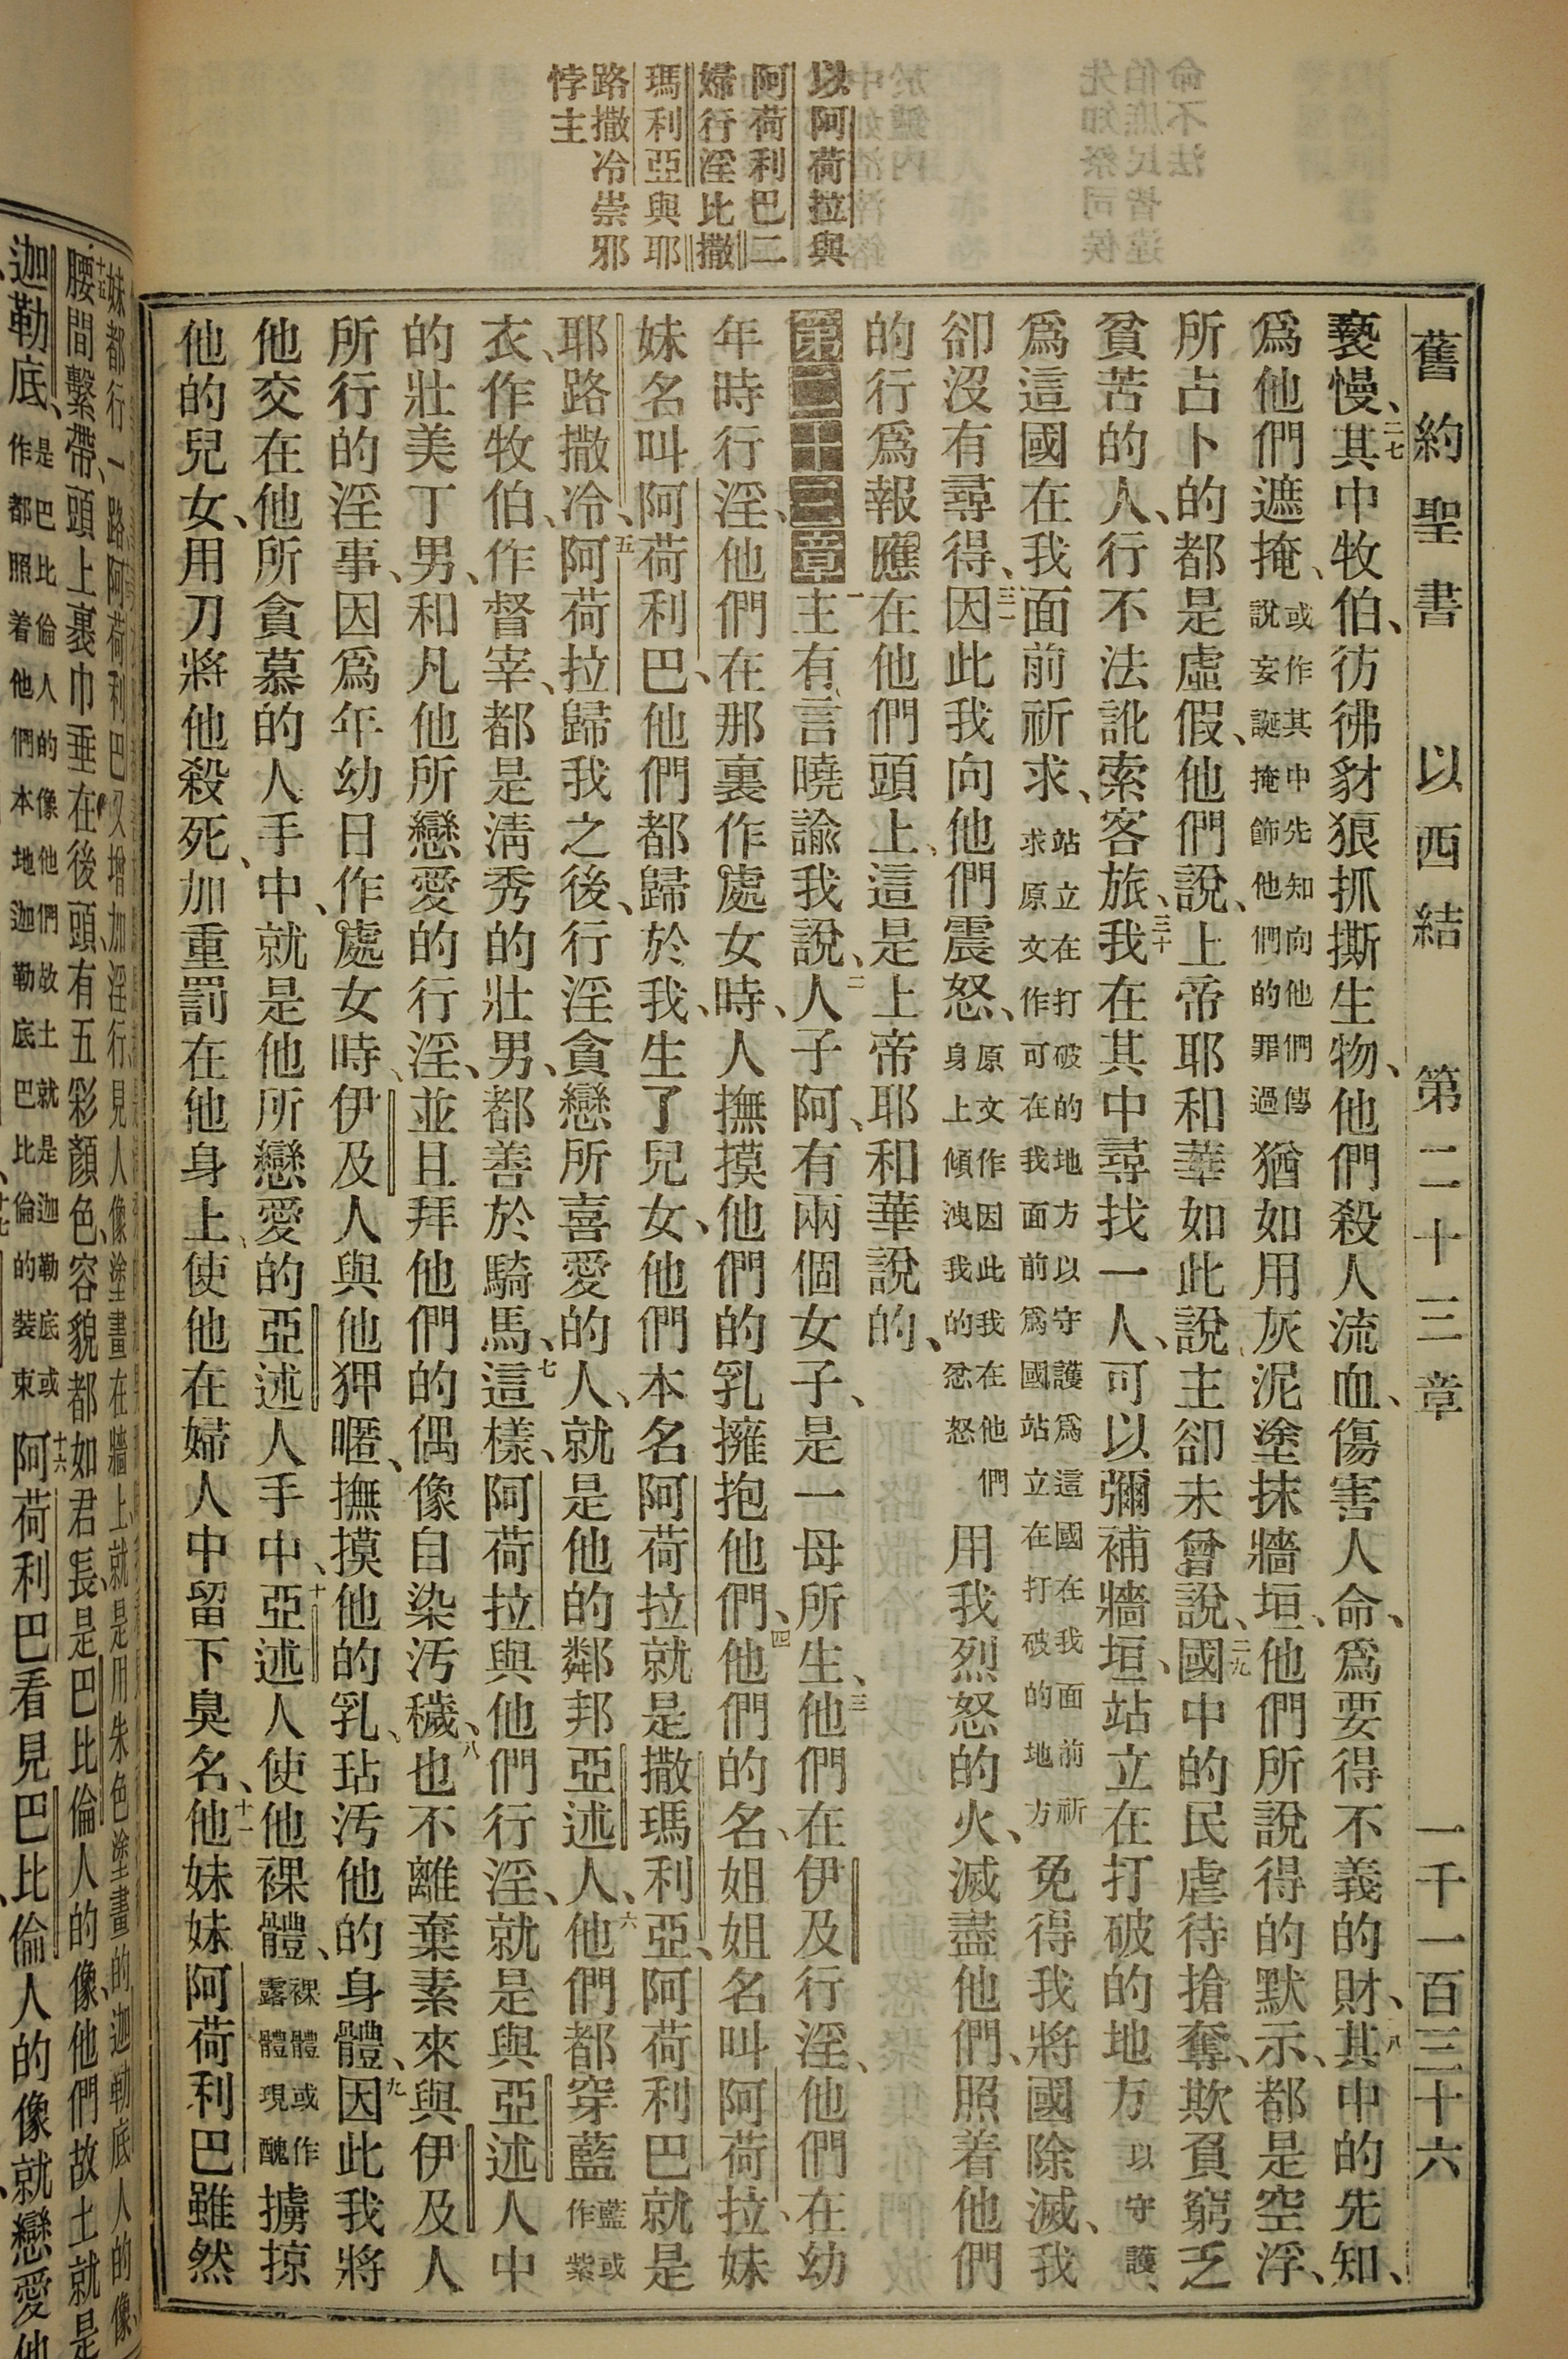 舊約聖書 以西結 第二十三章 一千一百三十六
以阿荷拉與
阿荷利巴二
婦行淫比撒
瑪利亞與耶
路撒冷崇邪
悖主
褻慢、二七其中牧伯、彷彿豺狼抓撕生物、他們殺人流血、傷害人命、爲要得不義的財、二八其中的先知、
爲他們遮掩、或作其中先知向他們傳說妄誕掩飾他們的罪過猶如用灰泥塗抹牆垣、他們所說得的默示、都是空浮、
所占卜的都是虛假、他們說、上帝耶和華如此說、主卻未曾說、二九國中的民虐待搶奪、欺負窮乏
貧苦的人、行不法訛索客旅、三十我在其中尋找一人、可以彌補牆垣、站立在打破的地方以守護、
爲這國在我面前祈求、站立在打破的地方以守護爲這國在我面前祈求原文作可在我面前爲國站立在打破的地方免得我將國除滅、我
卻沒有尋得、三一因此我向他們震怒、原文作因此我在他們身上傾洩我的忿怒用我烈怒的火、滅盡他們、照着他們
的行爲報應在他們頭上、這是上帝耶和華說的、
第二十三章一主有言曉諭我說、二人子阿、有兩個女子、是一母所生、三他們在伊及行淫、他們在幼
年時行淫、他們在那裏作處女時、人撫摸他們的乳擁抱他們、四他們的名、姐姐名叫阿荷拉、妹
妹名叫阿荷利巴、他們都歸於我、生了兒女、他們本名阿荷拉就是撒瑪利亞、阿荷利巴就是
耶路撒冷、五阿荷拉歸我之後、行淫貪戀所喜愛的人、就是他的鄰邦亞述人、六他們都穿藍藍或作紫
衣、作牧伯、作督宰、都是清秀的壯男、都善於騎馬、七這樣、阿荷拉與他們行淫、就是與亞述人中
的壯美丁男、和凡他所戀愛的行淫、並且拜他們的偶像自染汚穢、八也不離棄素來與伊及人
所行的淫事、因爲年幼日作處女時、伊及人與他狎暱、撫摸他的乳、玷汚他的身體、九因此我將
他交在他所貪慕的人手中、就是他所戀愛的亞述人手中、十亞述人使他裸體、裸體或作露體現醜擄掠
他的兒女、用刀將他殺死、加重罰在他身上、使他在婦人中留下臭名、十一他妹妹阿荷利巴雖然
妹都行一路、阿荷利巴又增加淫行、見人像塗畫在牆上、就是用朱色塗畫的迦勒底人的像、
十五腰間繫帶、頭上裹巾垂在後頭、有五彩顏色、容貌都如君長、是巴比倫人的像、他們故土就是
迦勒底、是巴比倫人的像他們故土就是迦勒底或作都照着他們本地迦勒底巴比倫的裝束十六阿荷利巴看見巴比倫人的像就戀愛他